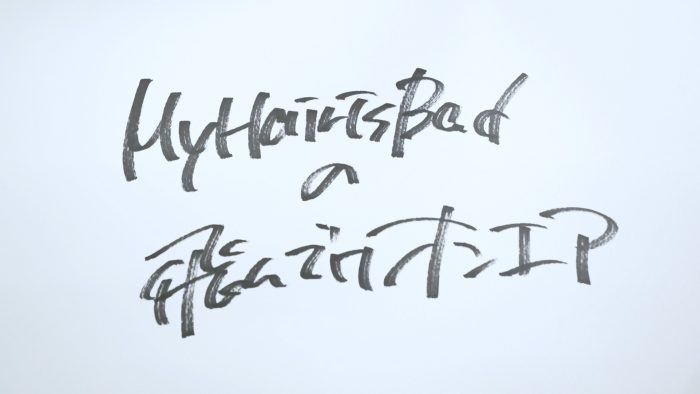 MyHairisBad
の
オンエア